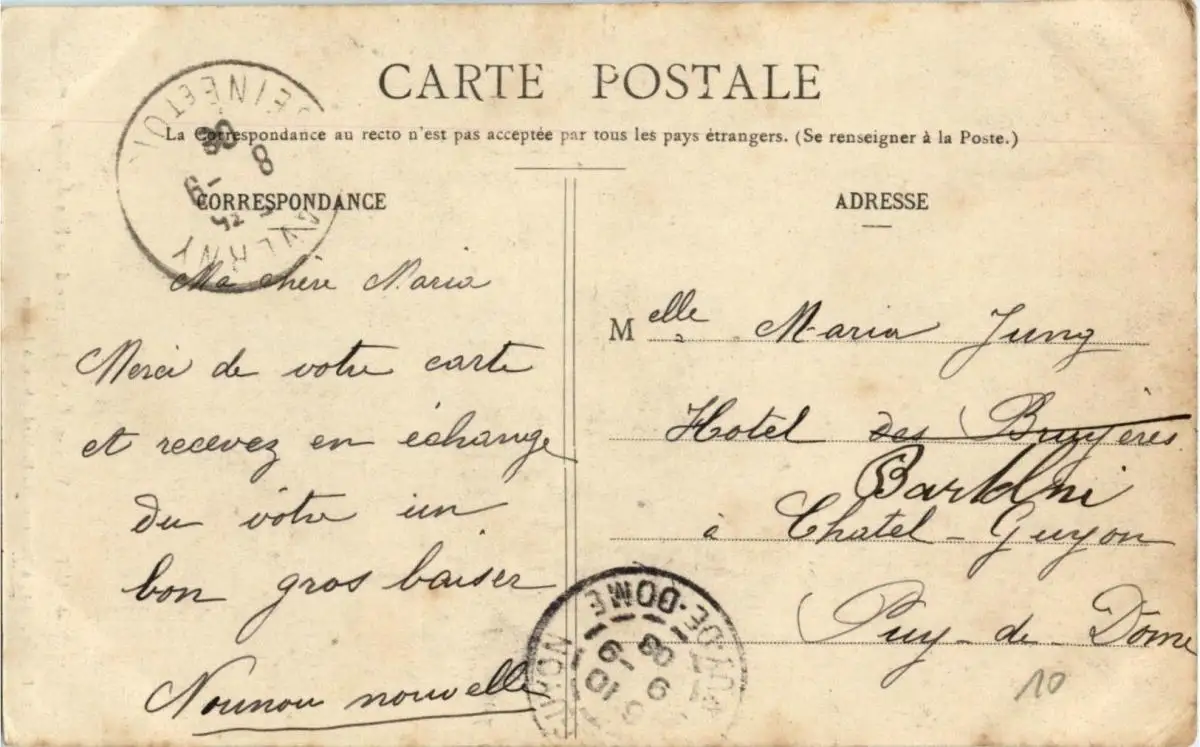 CARTE POSTALE
La Correspondance au recto n'est pas acceptée par tous les pays étrangers. (Se renseigner à la Poste.)
CORRESPONDANCE
Ma chère Maria
Merci de votre carte
et recevez en échange
du vôtre un
bon gros baiser
Nounou nouvelle
ADRESSE
Melle Maria Jung
Hotel des Bruyères
à Chatel-Guyon
Puy-de Dome
10
SEINE ET OI
TAVERNY
8
5 -9
08
PUY-DE-DOME
10 -9
08